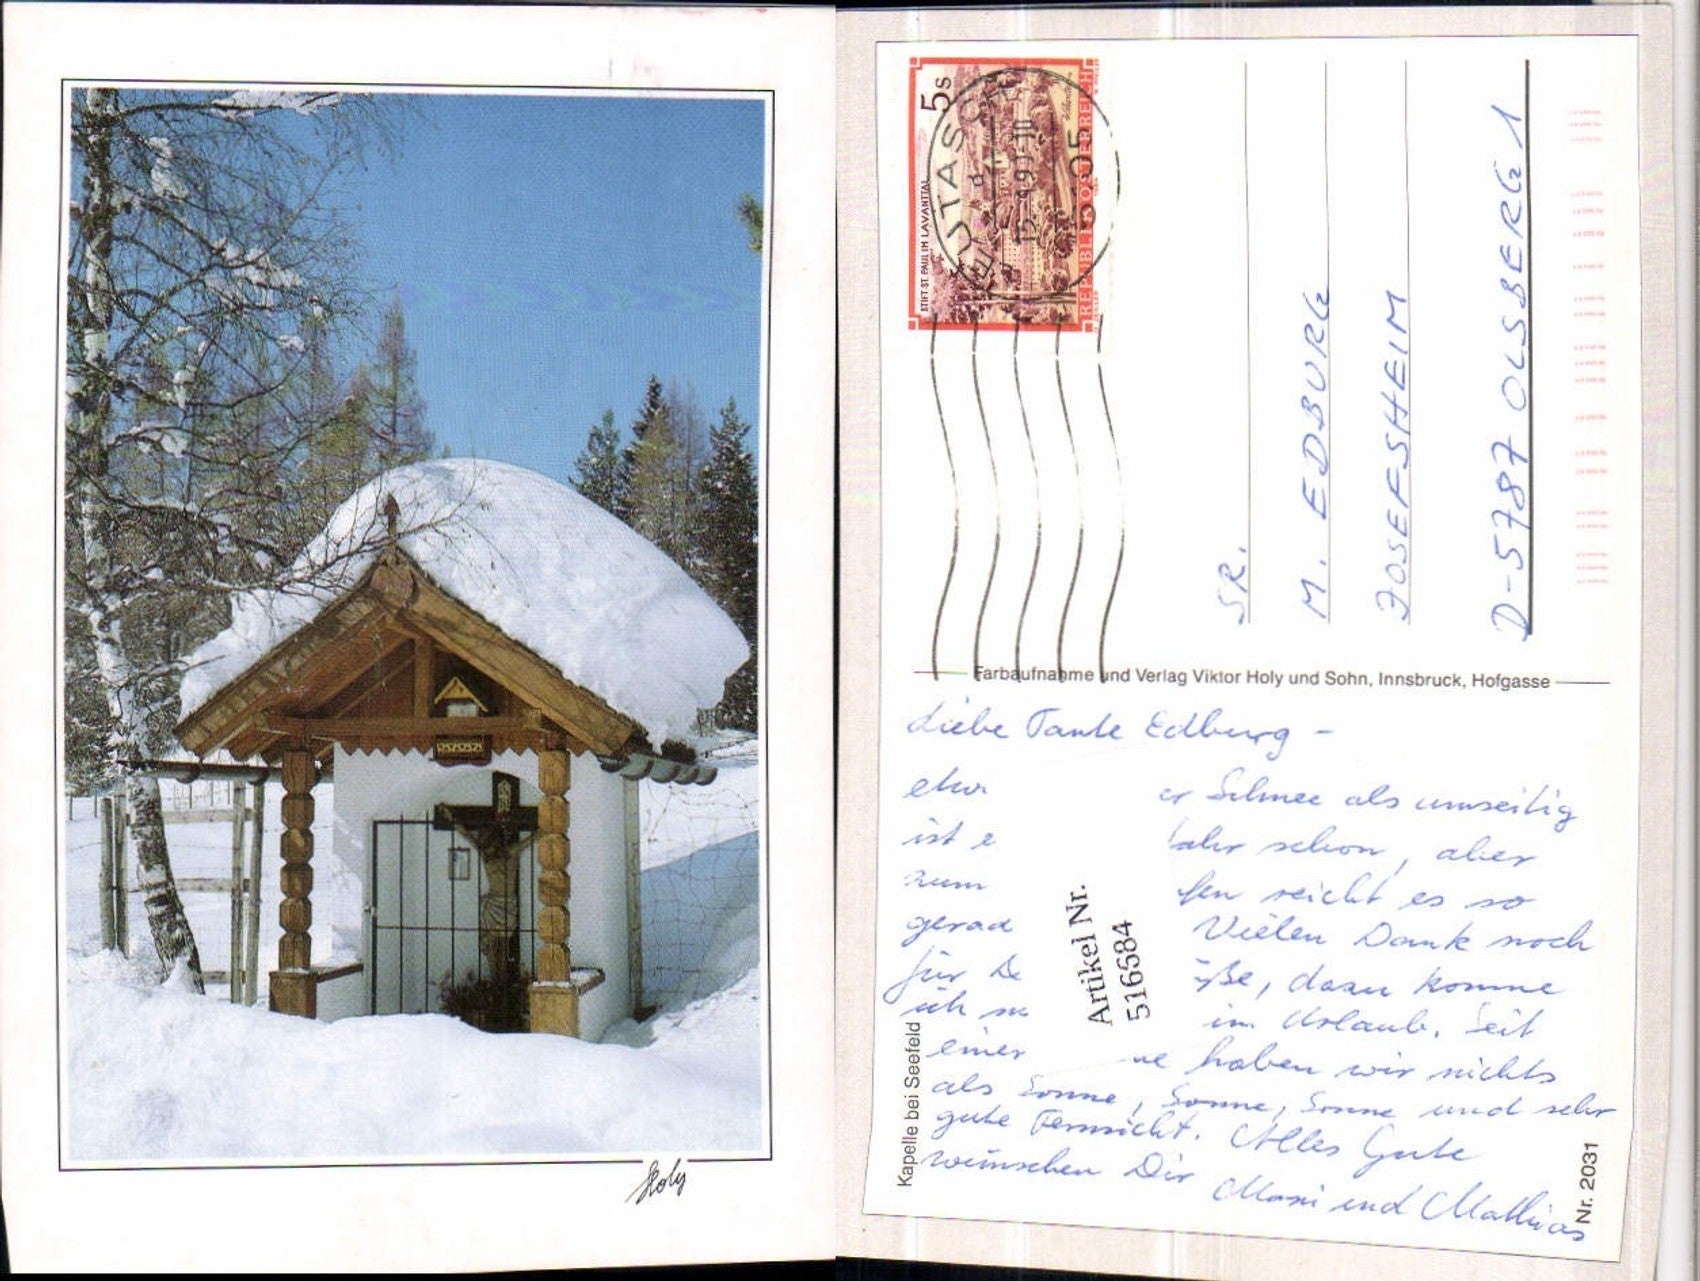 Holy
5 S
STIFT ST. PAUL IM LAVANTTAL
REPUBLIK ÖSTERREICH
LEUTASCH
15.-4.99-10
SR.
M. EDBURG
JOSEFSHEIM
D-5787 OLSBERG 1
Farbaufnahme und Verlag Viktor Holy und Sohn, Innsbruck, Hofgasse
Liebe Tante Edburg -
etw er Schnee als umseitig
ist e schon, aber
zum reicht es so
gerad Vielen Dank noch
für De üße, dazu komme
ich im Urlaub. Seit
einer haben wir nichts
als Sonne, Sonne, Sonne und sehr
gute Fernsicht. Alles Gute
wünschen Dir und Mathias
Artikel Nr.
516684
Kapelle bei Seefeld
Nr. 2031